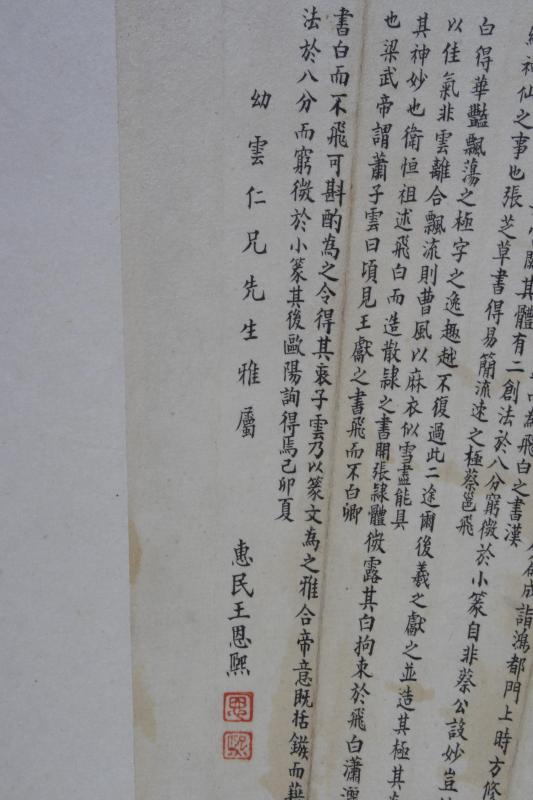 人篇成詣鴻都門上時方修
其體有二創法於八分窮微於小篆自非蔡公設妙豈
神仙之事也張芝草書得易簡流速之極蔡邕飛
白得華豔飄蕩之極字之逸趣越不復過此二途爾後羲之獻之並造其極其
以佳氣非雲離合飄流則曹風以麻衣似雪盡能具
其神妙也衛恒祖述飛白而造散隸之書開張隸體微露其白拘束於飛白瀟灑
也梁武帝謂蕭子雲曰頃見王獻之書飛而不白卿
書白而不飛可斟酌為之令得其衷子雲乃以篆文為之雅合帝意既括鏃而藉
法於八分而窮微於小篆其後歐陽詢得焉己卯夏
幼雲仁兄先生雅屬
惠民王恩熙
恩
熙